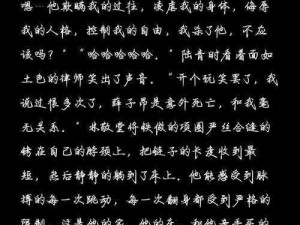 嗯…他欺瞒我的过往，凌虐我的身体，侮辱
我的人格，控制我的自由，我杀了他，不应
该吗？”“哈哈哈哈哈。”陆青时看着面如
土色的律师笑出了声音。“开个玩笑罢了，我
说过很多次了，薛子昂是意外死亡，和我毫
无关系。”林敬堂将铁做的项圈严丝合缝的
锁在自己的脖颈上，把链子的长度收到最
短，然后静静的躺到了床上。他能感受到脉
搏的每一次跳动，每一次翻身都受到严格的
限制。这是他的家，他的